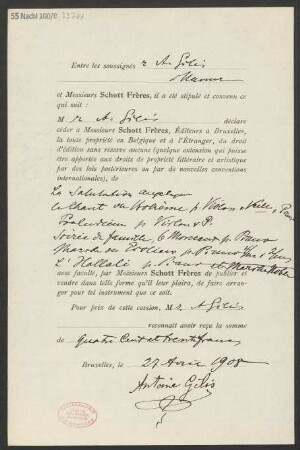 55 Nachl 100/B
Entre les soussignés A. Gilis
et Messieurs Schott Frères, il a été stipulé et convenu ce
qui suit :
M r A. Gilis déclare
céder à Messieurs Schott Frères, Éditeurs à Bruxelles,
la toute propriété en Belgique et à l'Étranger, du droit
d'édition sans réserve aucune (quelque extension qui puisse
être apportée aux droits de propriété littéraire et artistique
par des lois postérieures ou par de nouvelles conventions
internationales), de
La Salutation angélique
Le Chant du Bohème p. Violon
Praeludium p. Violon & P.
Soirée de famille 6 Morceaux p. Piano
Marche des Écoliers p. Piano
L'Hallali p. Piano et
avec faculté, par Messieurs Schott Frères de publier et
vendre dans telle forme qu'il leur plaira, de faire arran-
ger pour tel instrument que ce soit.
Pour prix de cette cession, M r A Gilis
reconnaît avoir reçu la somme
de quatre Cent et trente francs
Bruxelles, le 27 Avril 1908
Antoine Gilis